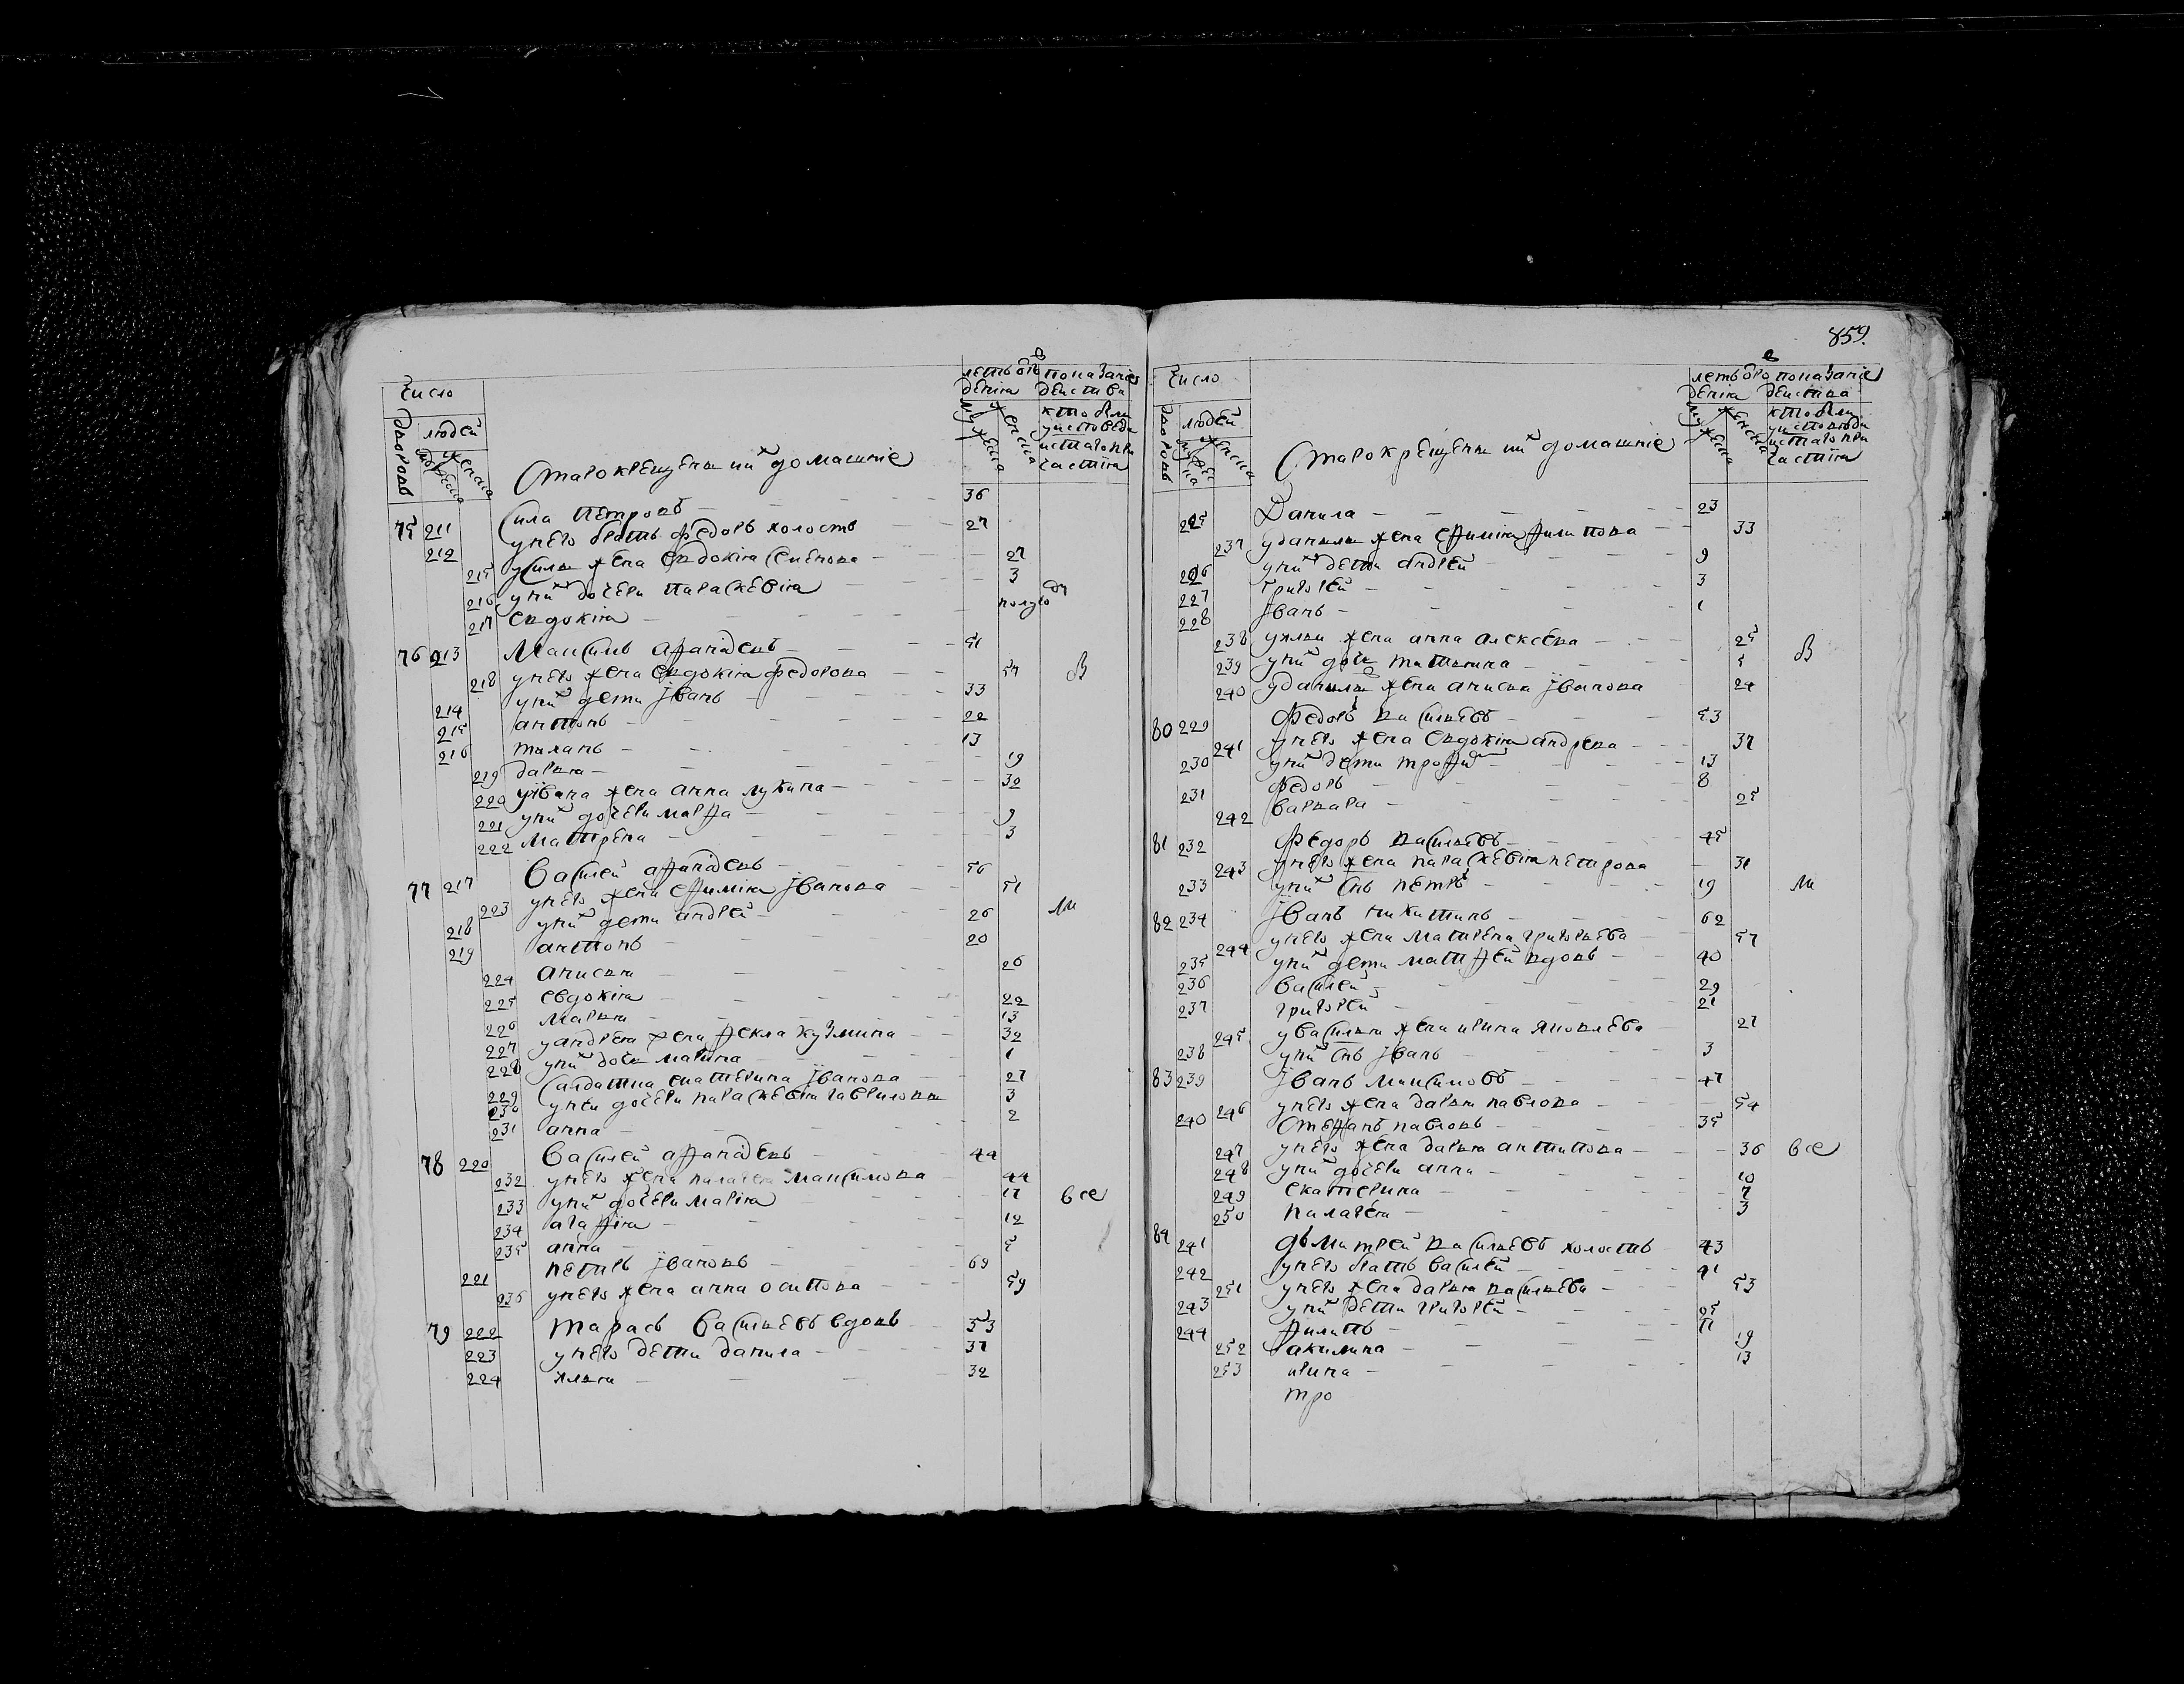 859
Число
летъ ѿ ро
дения
показание
действа
дворовъ
людей
мужеска
женска
мужеска
женска
кто были
у исповеди
и с-то при
частия
Старокрещены и ихъ домашние
75 211 Сила Петровъ 36
212 у него братъ Федоръ холостъ 27
215 у Силы жена Евдокия Семенова 27
216 у них дочери Параскевия 3
217 Евдокия полуго
76 213 Максимъ Афанасьевъ 51
218 у него жена Евдокия Федорова 54 В
214 у них дети Иванъ 33
215 Антонъ 22
216 13
219 Дарья 19
220 у Ивана жена Анна Лукина 32
221 у них дочери Марфа 9
222 Матрена 3
77 217 Василей Афанасьевъ 56
223 у него жена Ефимия Иванова 51
218 у них дети Андрей 26 М
219 Антонъ 20
224 Анисья 26
225 Евдокия 22
226 Марья 13
227 у Андрея жена Фекла Кузмина 32
228 у них дочь Марина 1
229 Салдатка Екатерина Иванова 27
230 у неи дочери Параскевия Гавриловы 3
231 Анна 2
78 220 Василей Афанасьевъ 44
232 у него жена Палагея Максимова 44
233 у них дочери Мария 17 все
234 Агафия 12
235 Анна 5
221 Петръ Ивановъ 69
236 у него жена Анна Осипова 59
79 222 Тарасъ Васильевъ вдовъ 53
223 у него дети Данила 37
224 Илья 32
Число
летъ ѿ ро
дения
показание
действа
дворовъ
людей
мужеска
женска
мужеска
женска
кто были
у исповеди
и с-то при
частия
Старокрещены и ихъ домашние
225 Данила 23
237 у Данилы жена Ефимия Филипова 33
226 у них дети Андрей 9
227 Григорей 3
228 Иванъ 1
238 у Ильи жена Анна Алексеева 25
239 у них дочь Татьяна 5 В
240 у Данилы жена Анисья Иванова 24
80 229 Федоръ Васильевъ 53
241 у него жена Евдокия Андреева 37
230 у них дети Трофим 13
231 Федоръ 8
242 Варвара 25
81 232 Федоръ Васильевъ 45
243 у него жена Параскевия Петрова 31
233 у них снъ Петръ 19 М
82 234 Иванъ Никитинъ 62
244 у него жена Матрена Григорьева 57
235 у них дети Матфей вдовъ 40
236 Василей 29
237 Григорей 21
245 у Василья жена Ирина Яковлева 27
238 у них снъ Иванъ 3
83 239 Иванъ Максимовъ 47
246 у него жена Дарья Павлова 54
240 Стефанъ Павловъ 35
247 у него жена Дарья Антипова 36 все
248 у них дочери Анна 10
249 Екатерина 7
250 Палагея 3
84 241 Дьмитрей Васильевъ холостъ 43
242 у него братъ Василей 41
251 у него жена Дарья Васильева 53
243 у них дети Григорей 25
244 Филипъ 11
252 Акилина 19
253 Ирина 13
Тро